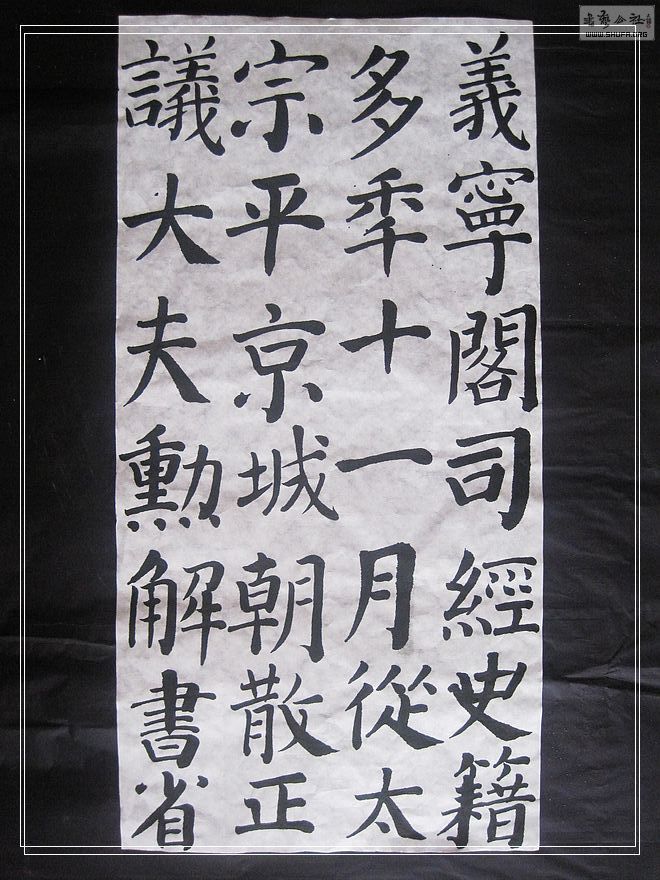 書藝公社
WWW.SHUFA.ORG
義寧閣司經史籍
多秊十一月從太
宗平京城朝散正
議大夫勳解書省